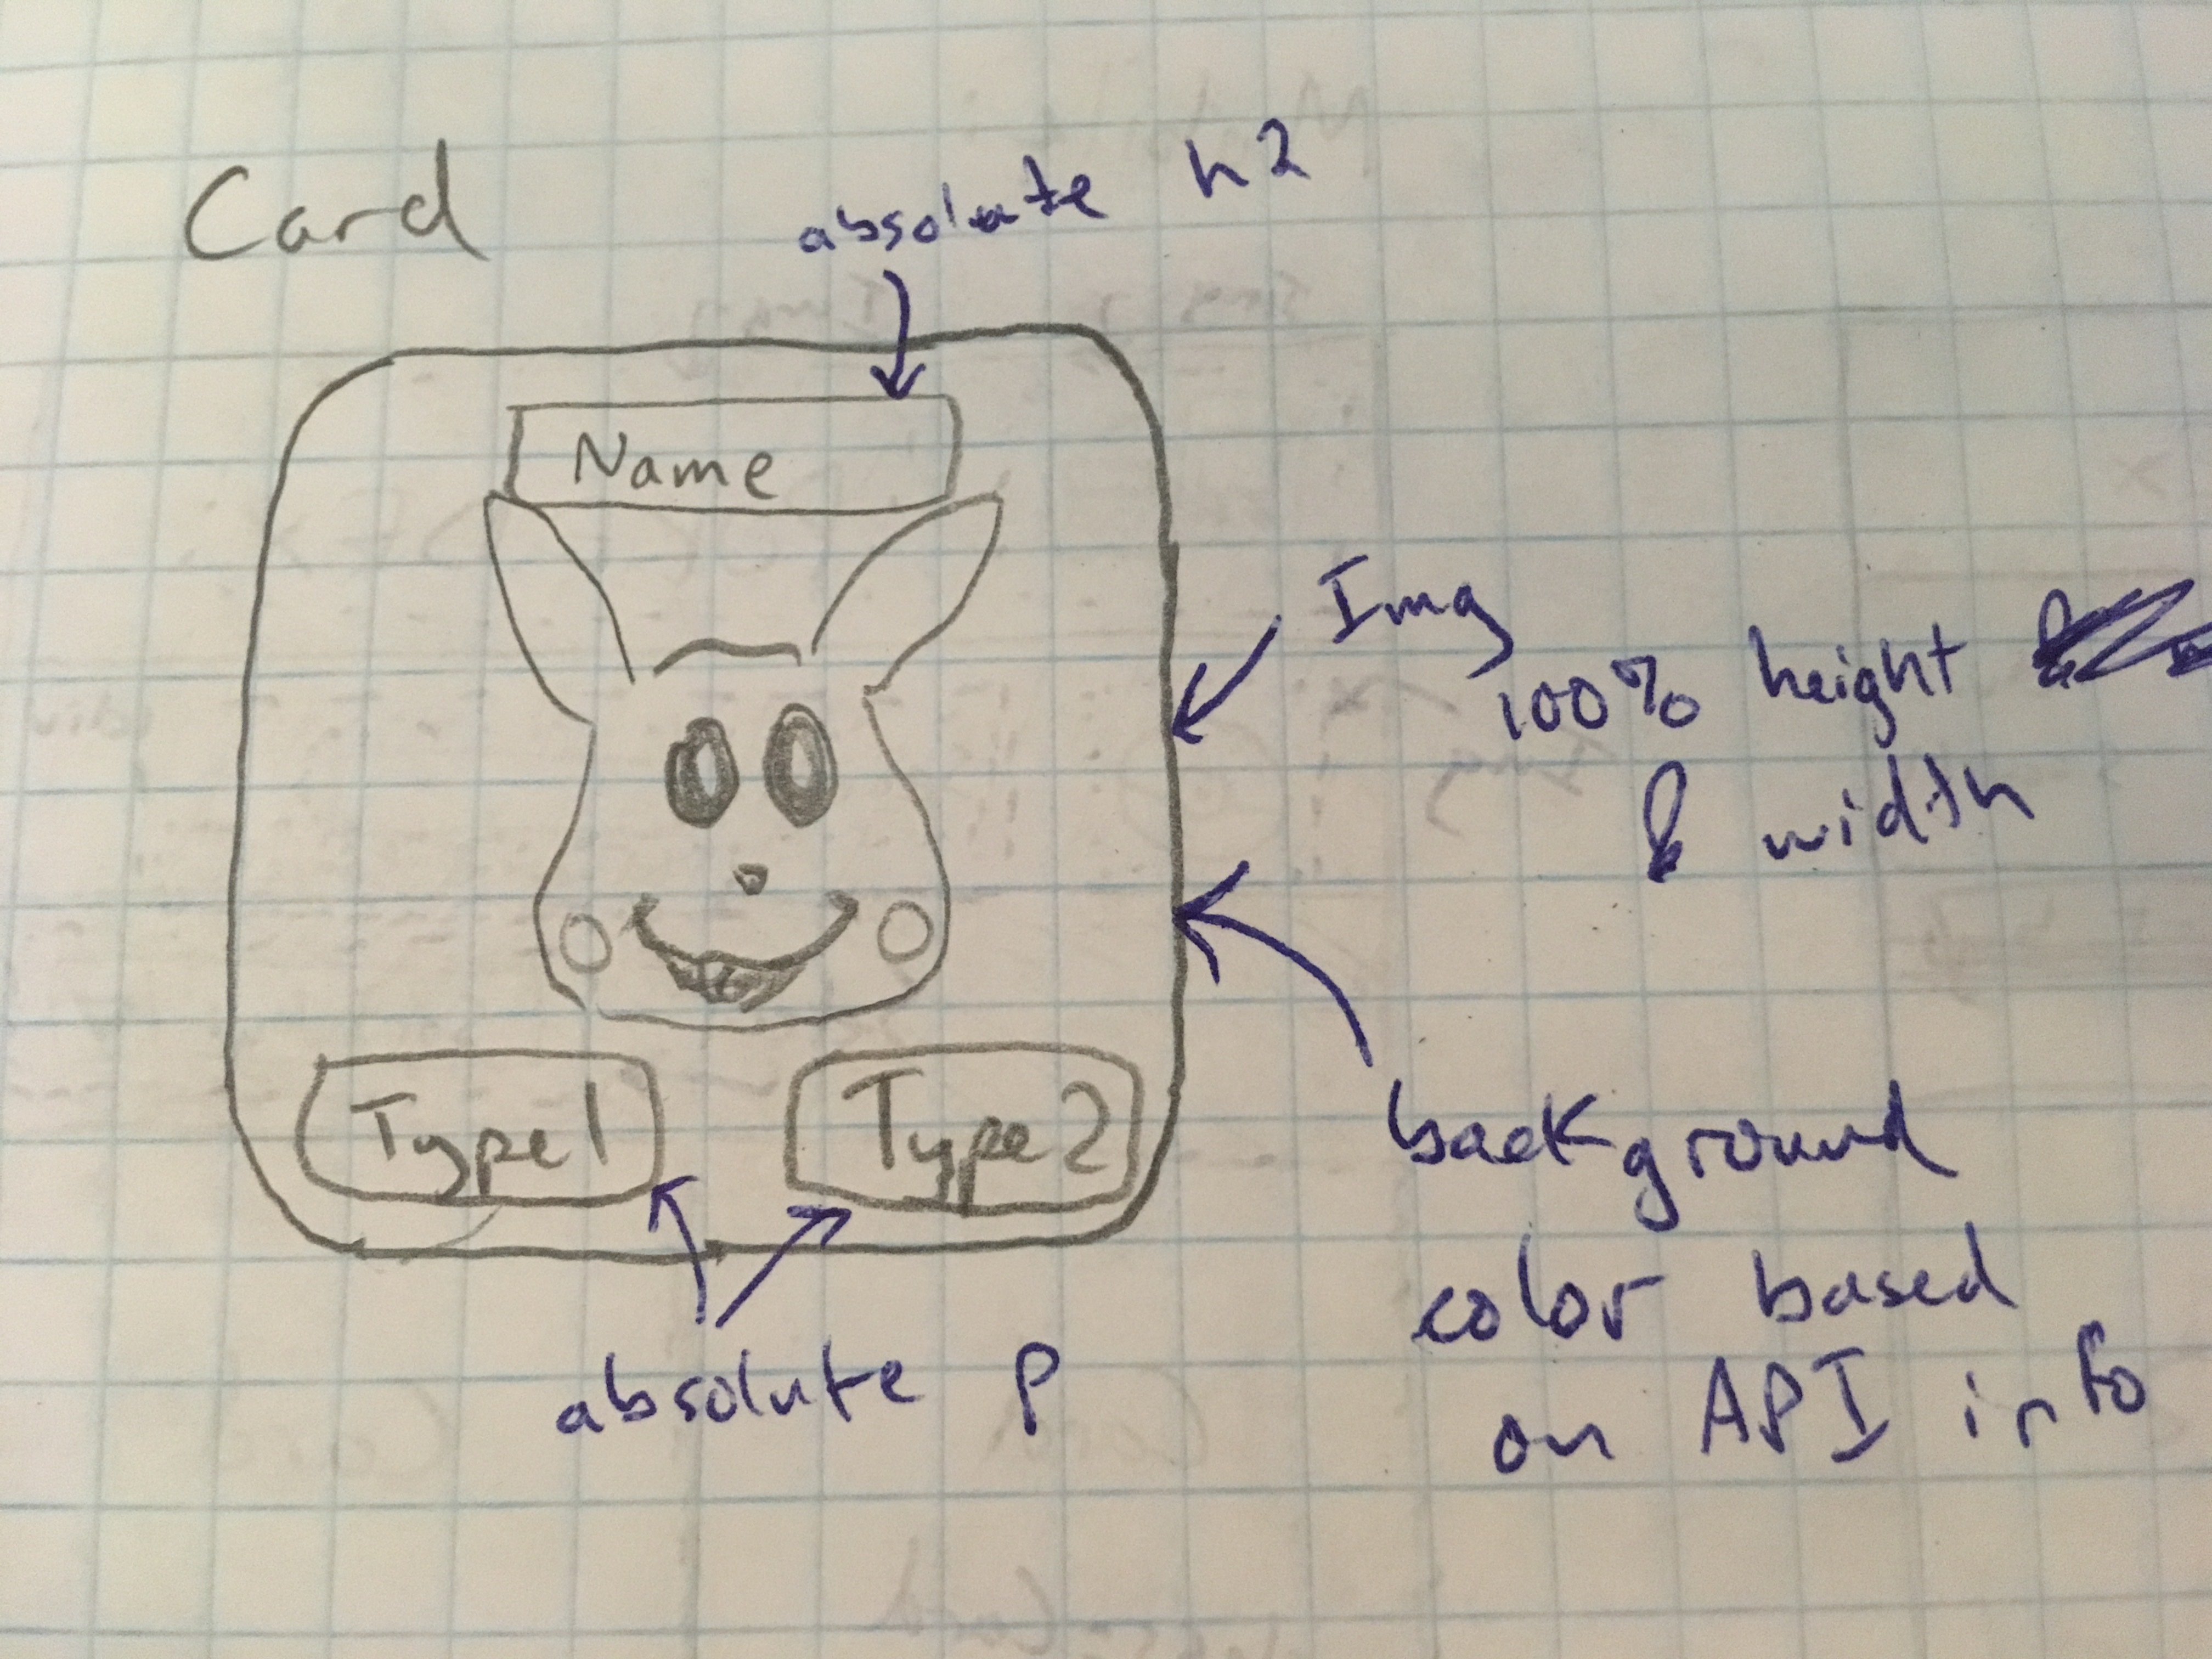 Card
absolute h2
Name
Img
100% height
& width
Type1
Type2
background
color based
on API info
absolute p